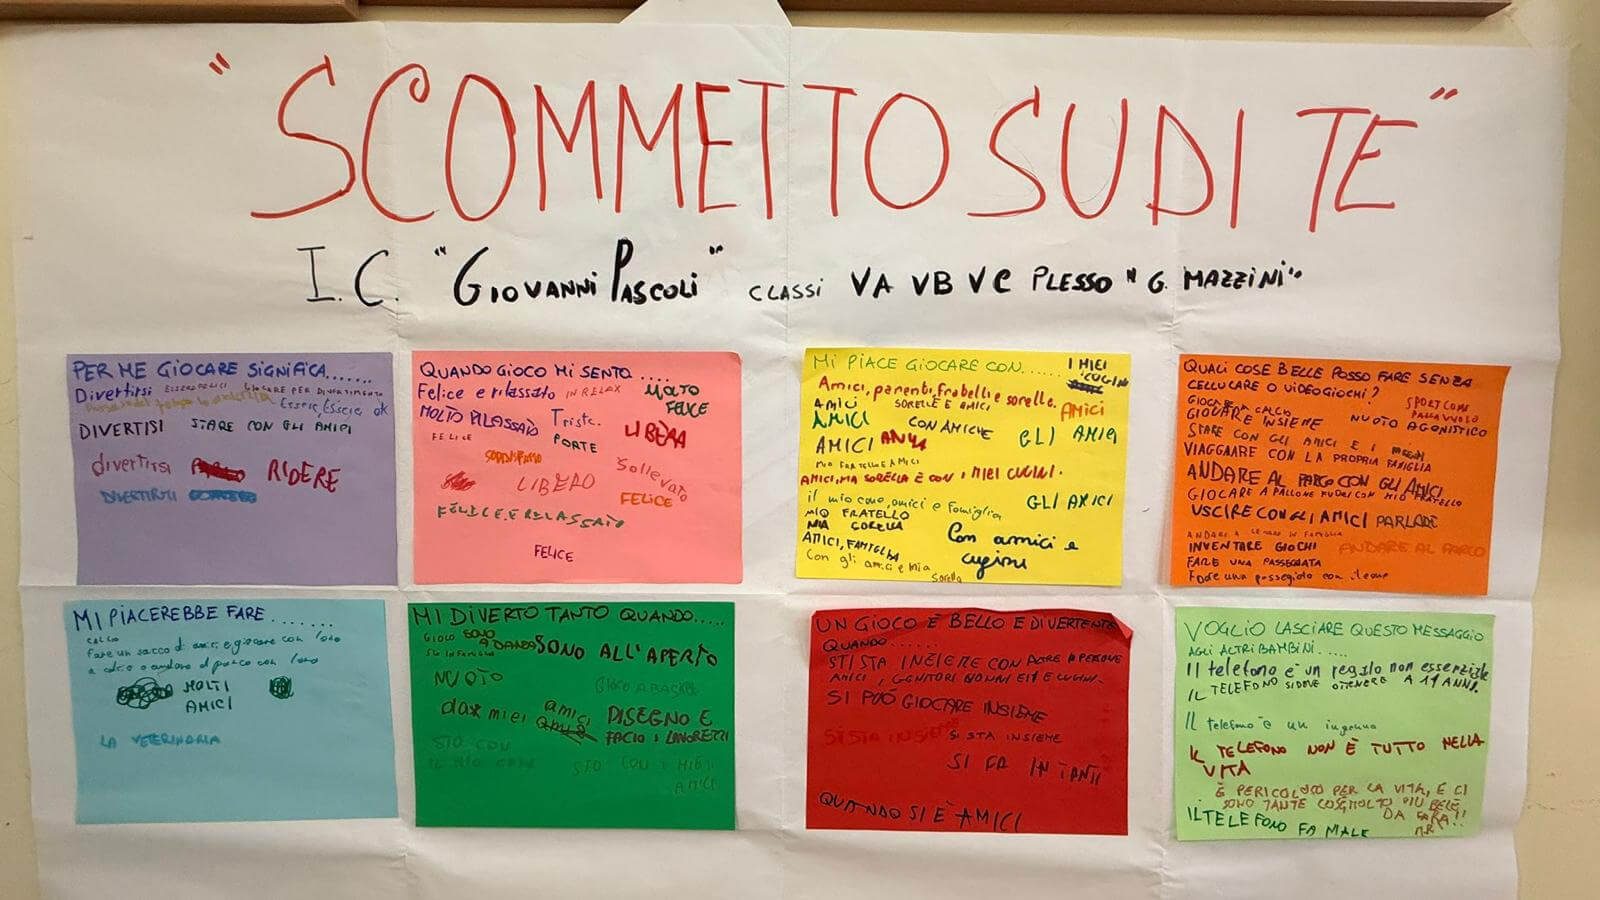 "SCOMMETTO SU DI TE"
I.C. "GIOVANNI PASCOLI" CLASSI VA VB VC PLESSO "G. MAZZINI"
PER ME GIOCARE SIGNIFICA.......
Divertirsi ESSERE FELICI GIOCARE PER DIVERTIMENTO
Essere, Essere ok
DIVERTISI STARE CON GLI AMICI
divertirsi RIDERE
DIVERTIRTI
QUANDO GIOCO MI SENTO.....
Felice e rilassato IN RELAX MOLTO FELICE
MOLTO RILASSATO Triste.
FORTE LIBERA
FELICE
LIBERO Sollevato
FELICE
FELICE E RILASSATO
FELICE
MI PIACE GIOCARE CON....... I MIEI CUGINI
Amici, parenti, fratelli e sorelle.
AMICI SORELLE E AMICI AMICI
AMICI CON AMICHE GLI AMICI
AMICI
MIO FRATELLO E AMICI
AMICI, MIA SORELLA E CON I MIEI CUGINI.
il mio cane, amici e famiglia GLI AMICI
MIO FRATELLO
MIA SORELLA
AMICI, FAMIGLIA
Con amici e cugini
Con gli amici e mia sorella
QUALI COSE BELLE POSSO FARE SENZA
CELLULARE O VIDEOGIOCHI?
SPORT COME PALLAVVOLO
GIOCARE A CALCIO
GIOVARE INSIEME NUOTO AGONISTICO
STARE CON GLI AMICI E I
VIAGGIARE CON LA PROPRIA FAMIGLIA
ANDARE AL PARCO CON GLI AMICI
GIOCARE A PALLONE FUORI CON MIO FRATELLO
USCIRE CON GLI AMICI PARLARE
ANDARE A CENARE IN FAMIGLIA
INVENTARE GIOCHI ANDARE AL PARCO
FARE UNA PASSEGGIATA
Fare una passegiata con il cane
MI PIACEREBBE FARE.......
CALCIO
fare un sacco di amici e giocare con loro
a calcio o andare al parco con loro
MOLTI
AMICI
LA VETERINARIA
MI DIVERTO TANTO QUANDO.....
GIOCO SONO A DANZA SONO ALL'APERTO
STO IN FAMIGLIA
NUOTO GIOCO A BASKET
dai miei amici DISEGNO E
FACIO I LAVORETTI
STO CON
IL MIO CANE STO CON I MIEI
AMICI
UN GIOCO È BELLO E DIVERTENTE
QUANDO.......
SI STA INSIEME CON ALTRE PERSONE
AMICI, GENITORI NONNI E I CUGINI.
SI PUÓ GIOCARE INSIEME
SI STA INSIEME SI STA INSIEME
SI FA IN TANTI
QUANDO SI È AMICI
VOGLIO LASCIARE QUESTO MESSAGGIO
AGLI ALTRI BAMBINI.....
Il telefono è un regalo non essenziale
IL TELEFONO SI DEVE OTTENERE A 14 ANNI.
Il telefono è un inganno
IL TELEFONO NON È TUTTO NELLA
VITA
È PERICOLOSO PER LA VITA, E CI
SONO TANTE COSE MOLTO PIÙ BELE
DA FARE!!
IL TELEFONO FA MALE M.R.